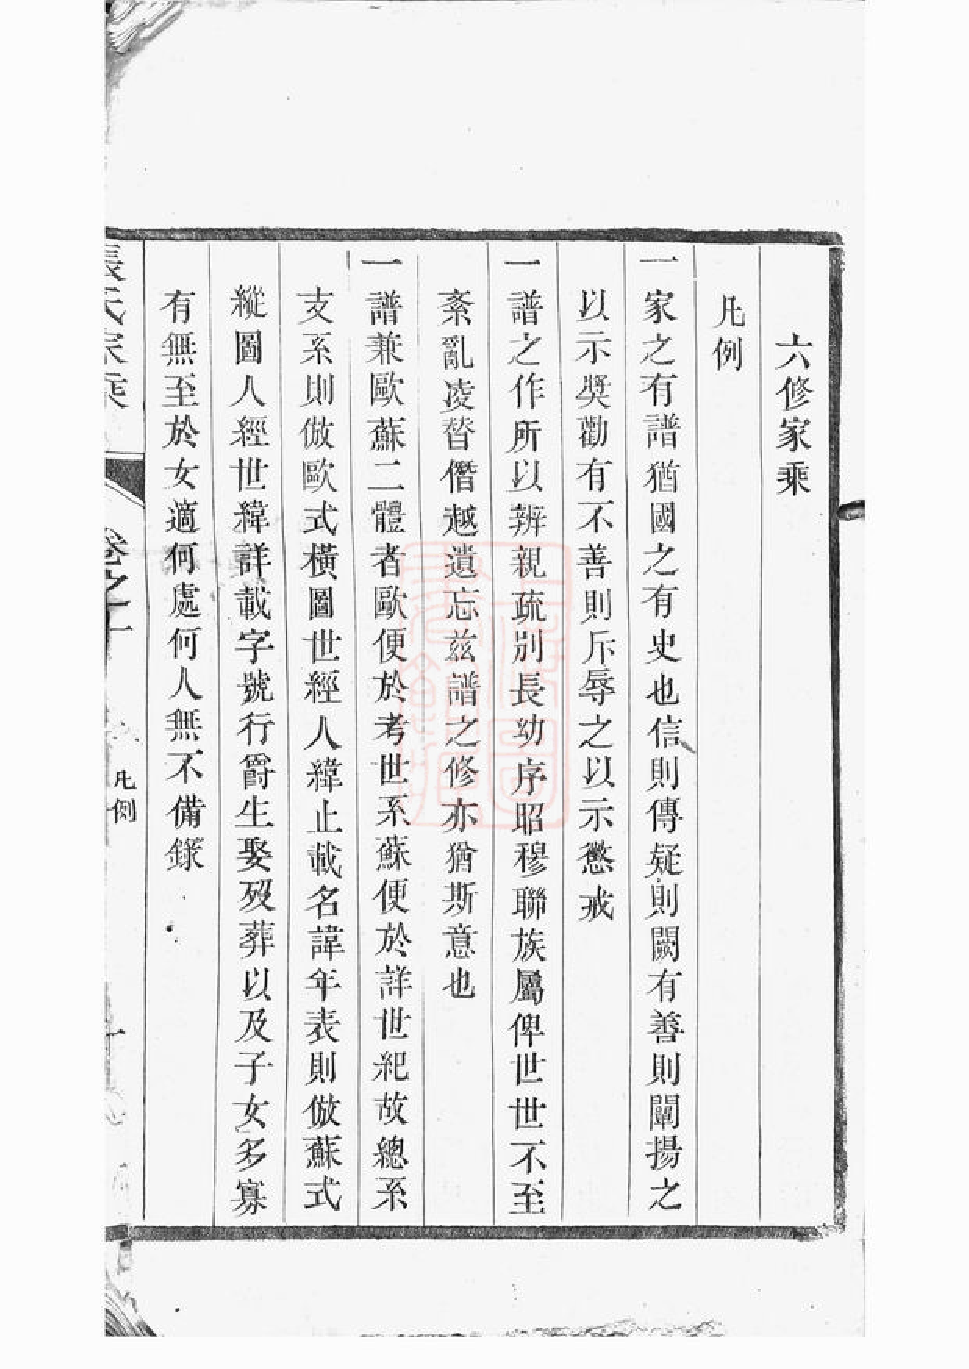 六修家乘
凡例
一家之有譜猶國之有史也信則傳疑則闕有善則闡揚之
以示奬勸有不善則斥辱之以示懲戒
一譜之作所以辨親疏別長幼序昭穆聯族屬俾世世不至
紊亂凌替僭越遺忘兹譜之修亦猶斯意也
一譜兼歐蘇二體者歐便於考世系蘇便於詳世紀故總系
支系則倣歐式橫圖世經人緯止載名諱年表則倣蘇式
縱圖人經世緯詳載字號行爵生娶歿葬以及子女多寡
有無至於女適何處何人無不備錄
張氏家乘
卷之一
凡例
一